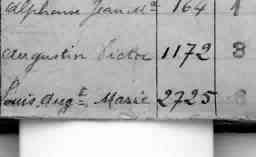 Alphonse Jean Mie 164 1
Augustin Victor 1172 8
Louis Augte Marie 2725 8